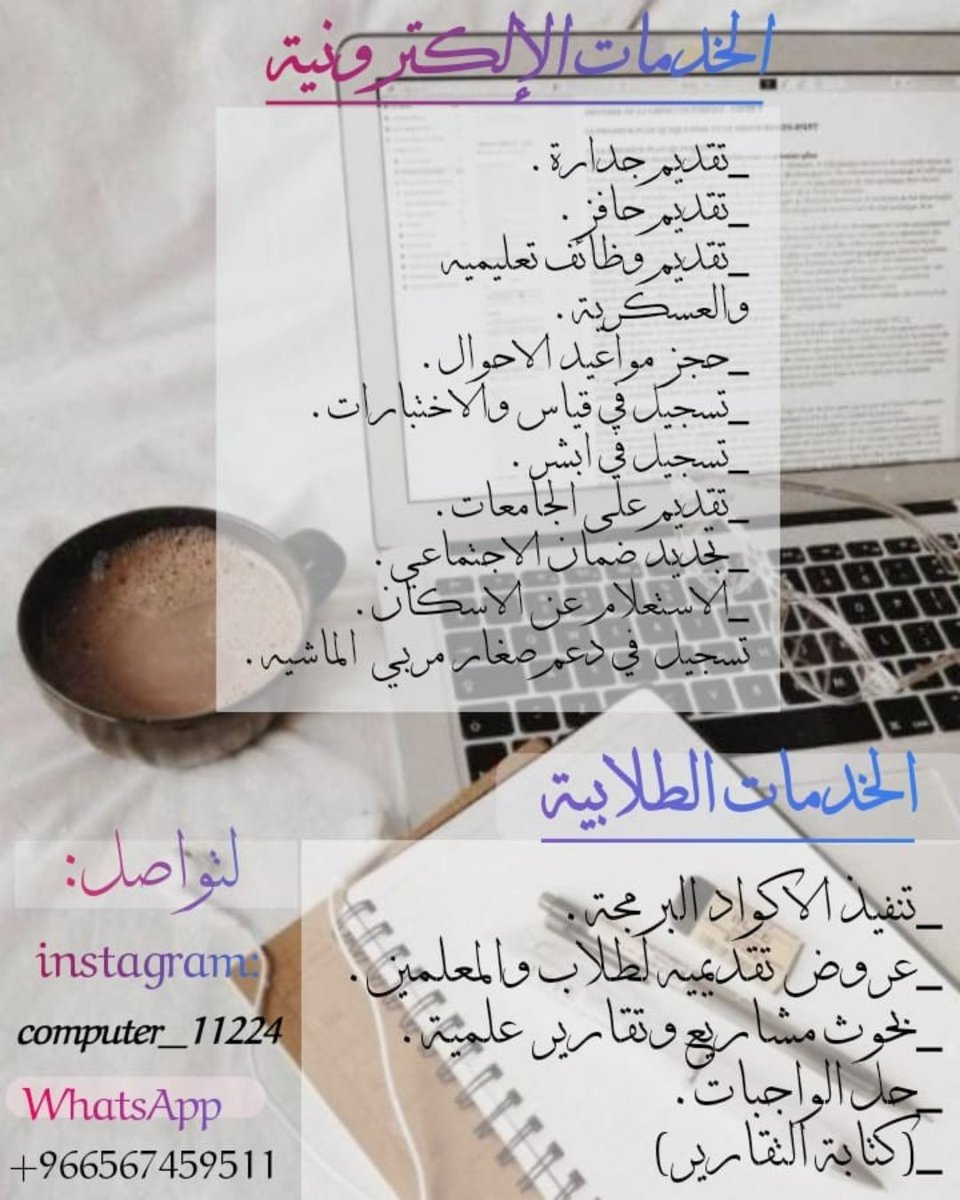 الخدمات الإلكترونية
_تقديم جدارة .
_تقديم حافز .
_تقديم وظائف تعليميه
والعسكرية .
_حجز مواعيد الاحوال .
_تسجيل في قياس والاختبارات .
_تسجيل في ابشر .
_تقديم على الجامعات .
_تجديد ضمان الاجتماعي .
_الاستعلام عن الاسكان .
تسجيل في دعم صغار مربي الماشيه .
الخدمات الطلابية
_تنفيذ الاكواد البرمجة .
_عروض تقديميه لطلاب والمعلمين .
_بحوث مشاريع وتقارير علمية .
_حل الواجبات .
_(كتابة التقارير)
لتواصل:
instagram:
computer_11224
WhatsApp
+966567459511